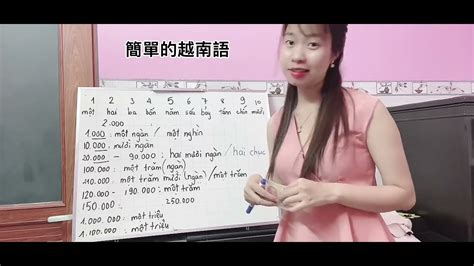 簡單的越南語
1 2 3 4 5 6 7 8 9 10
một hai ba bốn năm sáu bảy tám chín mười
2.000
1.000 : một ngàn / một nghìn
10.000 : mười ngàn
20.000 - 90.000 : hai mươi ngàn / hai chục
100.000 : một trăm (ngàn)
110.000 : một trăm mười (ngàn) / một trăm
120.000 - 190.000 : một trăm
150.000 : 250.000
1.000.000 : một triệu
1.100.000 : một triệu